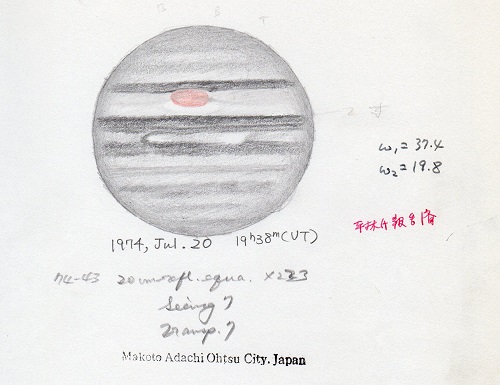 ω₁=37.4
ω₂=19.8
平林へ報告済
1974, Jul. 20 19ʰ38ᵐ(UT)
74-43 20cm refl. equa. ×223
Seeing 7
Transp. 7
Makoto Adachi Ohtsu City. Japan